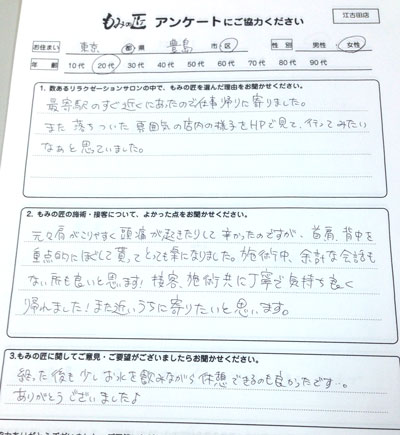 もみの匠 アンケートにご協力ください
江古田店
お住まい 東京 都 県 豊島 市 区 性別 男性 女性
年齢 10代 20代 30代 40代 50代 60代 70代 80代 90代
1. 数あるリラクゼーションサロンの中で、もみの匠を選んだ理由をお聞かせください。
最寄駅のすぐ近くにあたので仕事帰りに寄りました。
また落ちついた雰囲気の店内の様子をHPで見て、行ってみたい
なぁと思っていました。
2. もみの匠の施術・接客について、よかった点をお聞かせください。
元々肩がこりやすく頭痛が起きたりして辛かったのですが、首肩、背中を
重点的にほぐして貰ってとても楽になりました。施術中、余計な会話も
ない所も良いと思います!接客、施術共に丁寧で気持ち良く
帰れました!また近いうちに寄りたいと思います。
3.もみの匠に関してご意見・ご要望がございましたらお聞かせください。
終った後も少しお水を飲みながら休憩できるのも良かったです…。
ありがとうございました♪